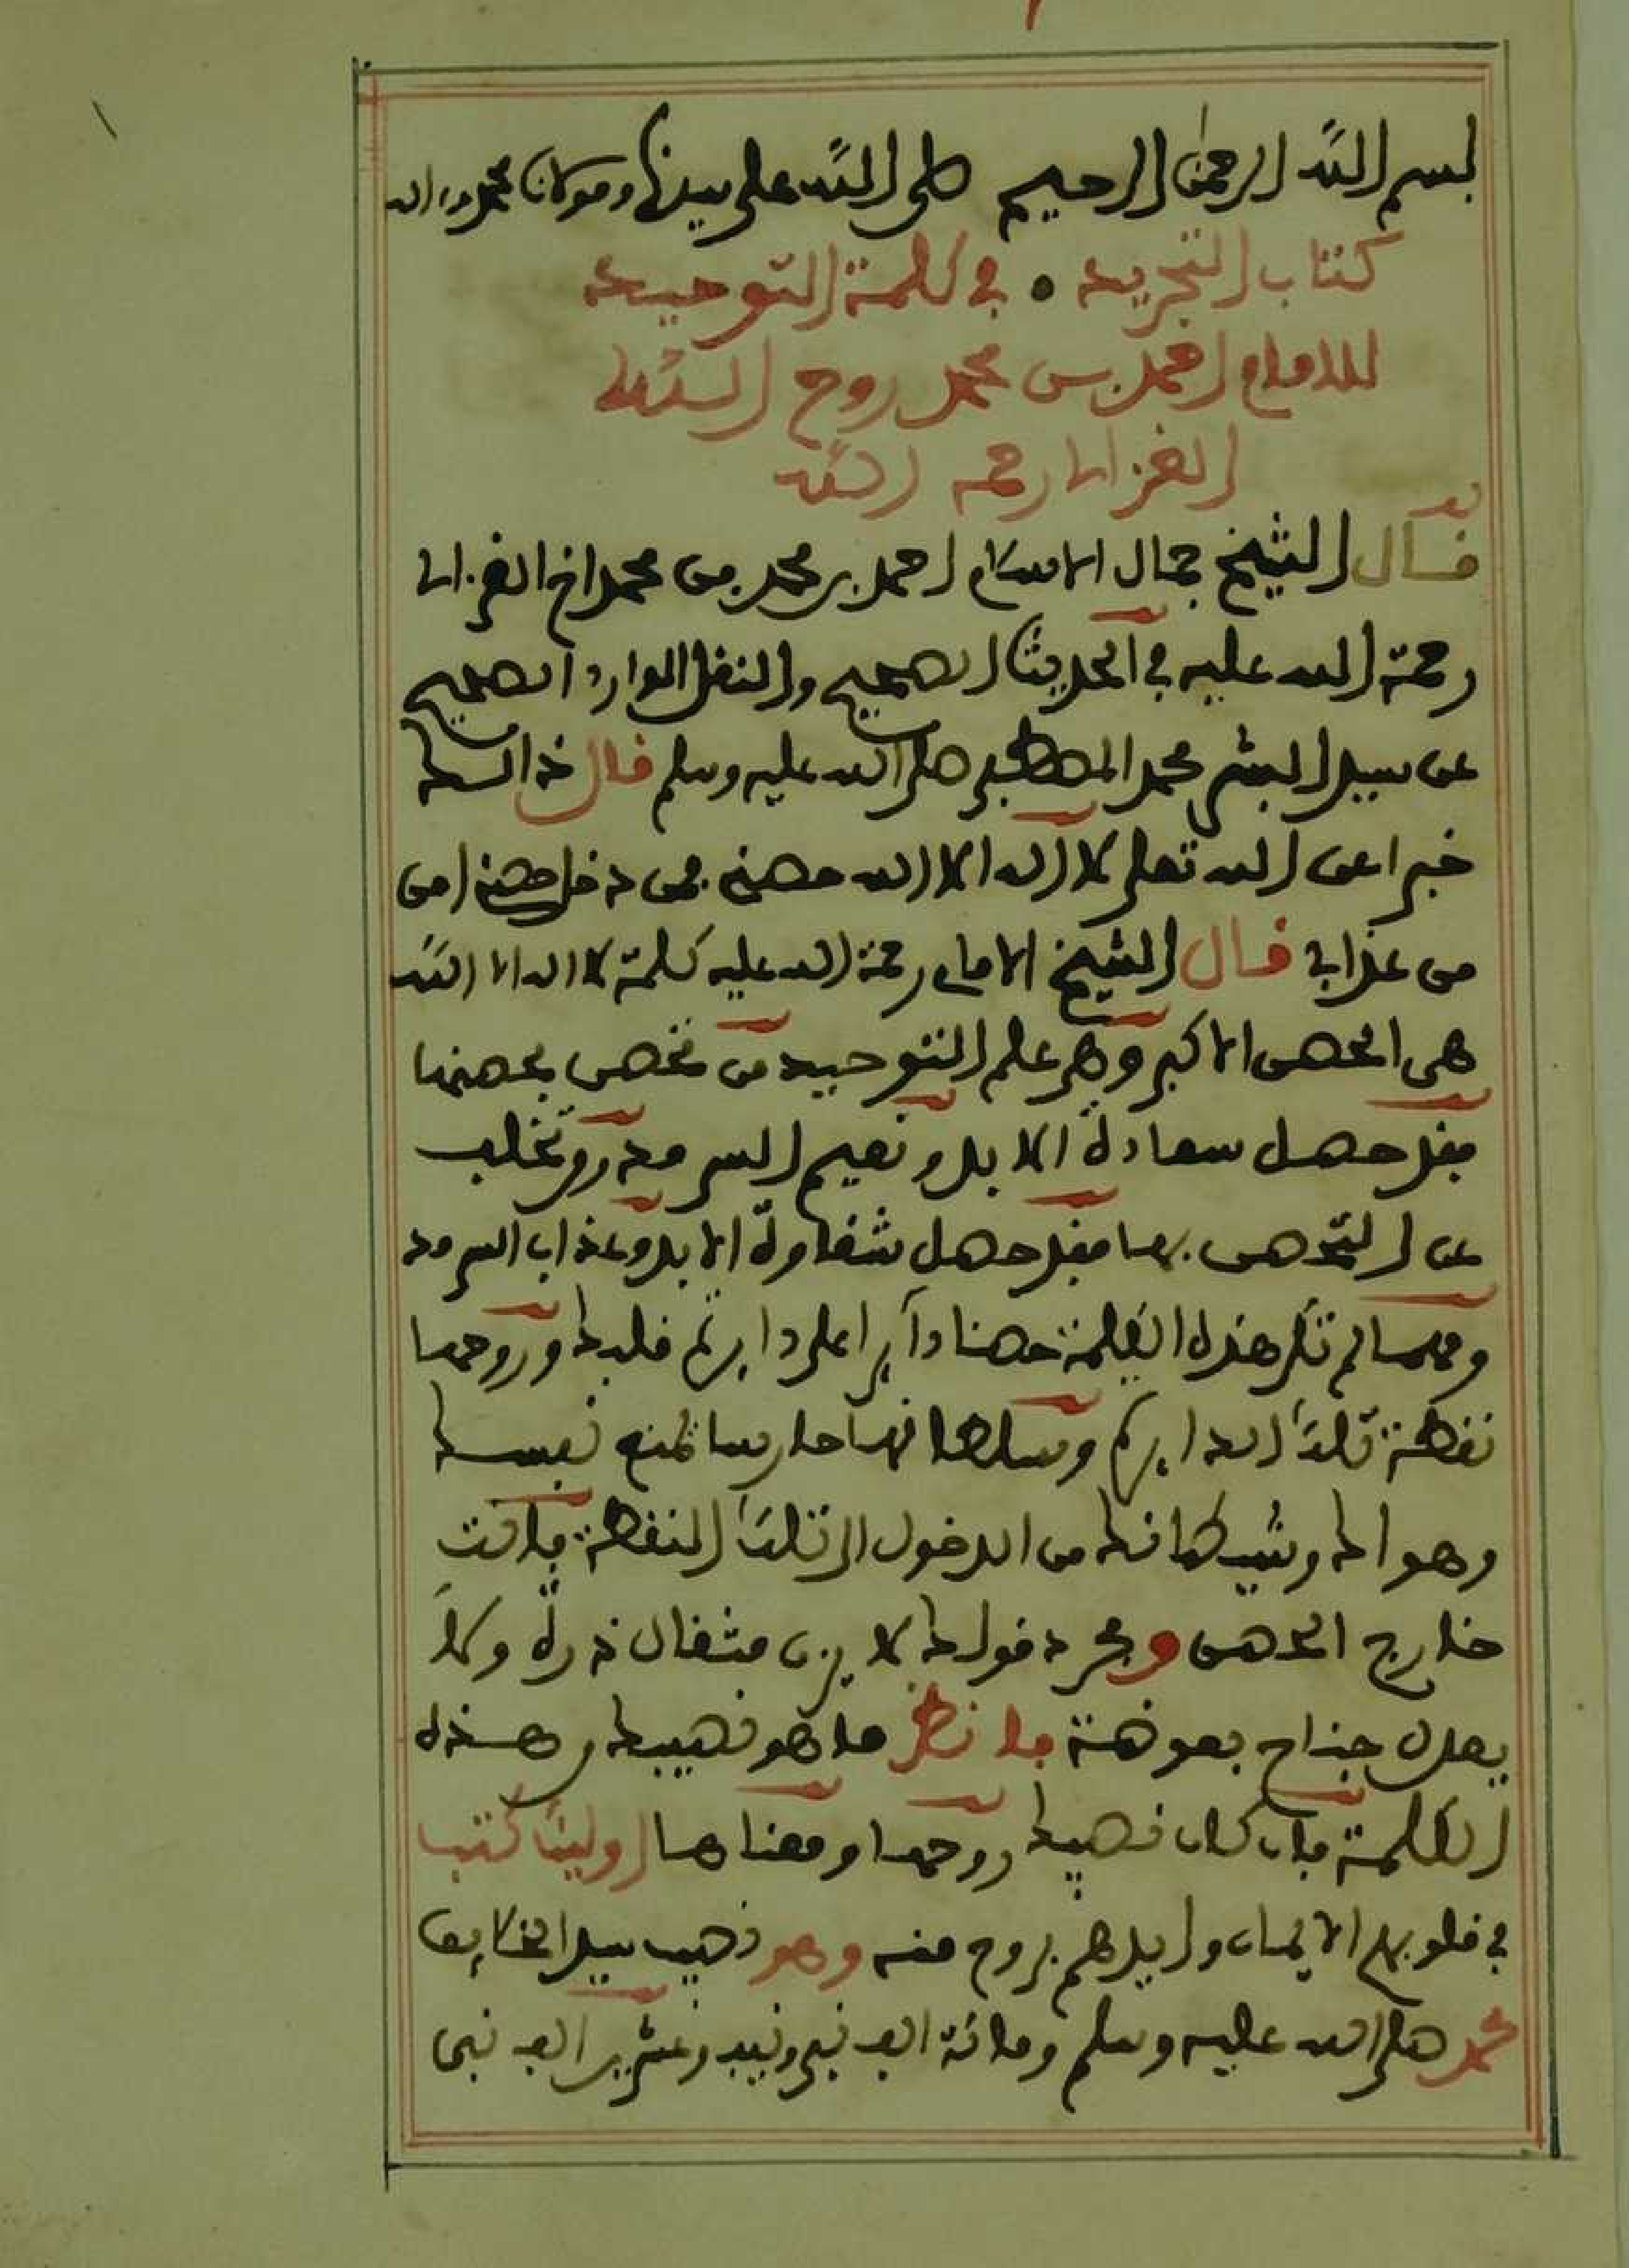 بسم الله الرحمن الرحيم صلى الله على سيدنا ومولانا محمد وءاله
كتاب التجريد في كلمة التوحيد
للامام احمد بن محمد روح الله
الغزالي رحمه الله
قال الشيخ جمال الاسلام احمد بن محمد بن محمد اخ الغزالي
رحمة الله عليه في الحديث الصحيح والنقل الوارد الصحيح
عن سيد البشر محمد المطهر صلى الله عليه وسلم قال
خبرا عن الله تعلى لا اله الا الله حصني فمن دخل حصني امن
من عذابي قال الشيخ الامام رحمة الله عليه كلمة لا اله الا الله
هي الحصن الاكبر وهي علم التوحيد من تحصن بحصنها
فقد حصل سعادة الابد ونعيم السرمد ومن تخلف
عن التحصن بها فقد حصل شقاوة الابد وعذاب السرمد
ومهما لم تكن هذه الكلمة حصنا دآيرا على دايرة قلبك وروحها
نقطة تلك الدايرة وسلطانها حارسا تمنع نفسك
وهواك وشيطانك من الدخول الى تلك النقطة فانت
خارج الحصن ومجرد قولك لا يزن مثقال ذرة ولا
يعدل جناح بعوضة فانظر ما هو نصيبك من هذه
الكلمة فان كان نصيبك روحها ومعناها اوليك كتب
في قلوبهم الايمان وايدهم بروح منه وهو نصيب سيد الخلايق
محمد صلى الله عليه وسلم ومائة الف نبي ونيف وعشرين الف نبي